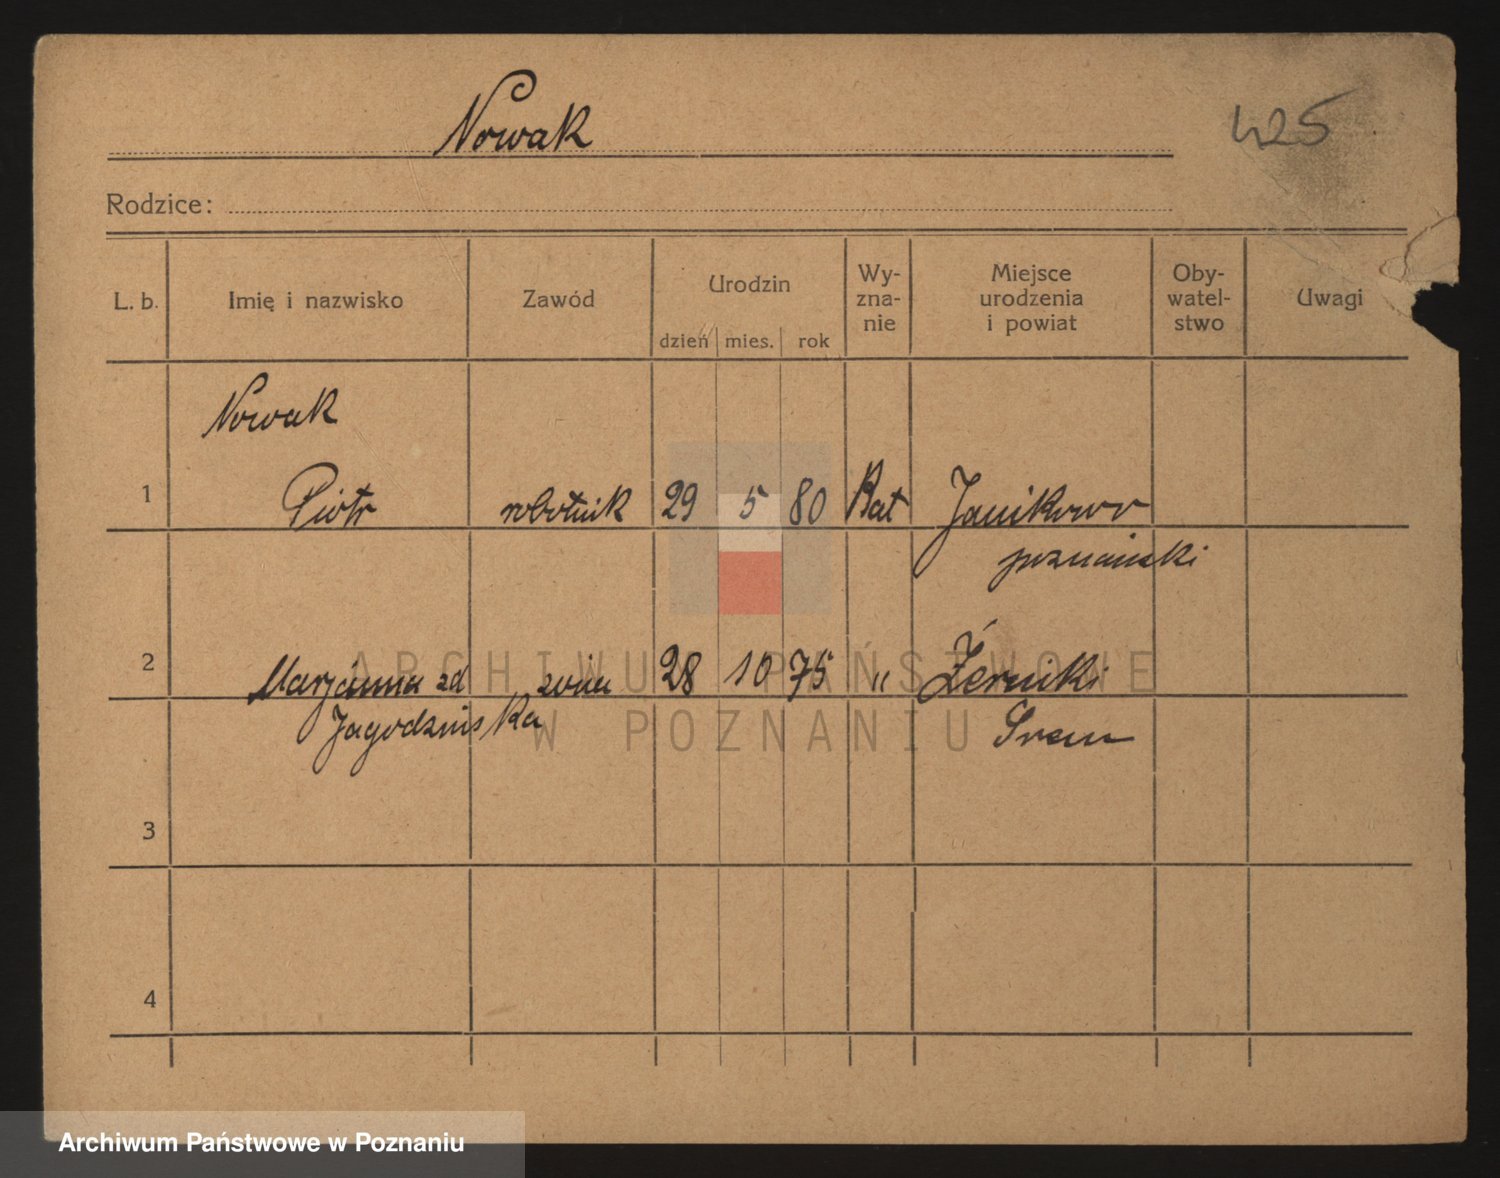 Nowak
425
Rodzice:
L. b.
Imię i nazwisko
Zawód
Urodzin
dzień mies. rok
Wy-
zna-
nie
Miejsce
urodzenia
i powiat
Oby-
watel-
stwo
Uwagi
Nowak
1 Piotr robotnik 29 5 80 Kat Janikowo
poznański
2 Marjanna zd żona 28 10 75 " Żerniki
Jagodzińska Śrem
3
4
ARCHIWUM PAŃSTWOWE
W POZNANIU
Archiwum Państwowe w Poznaniu